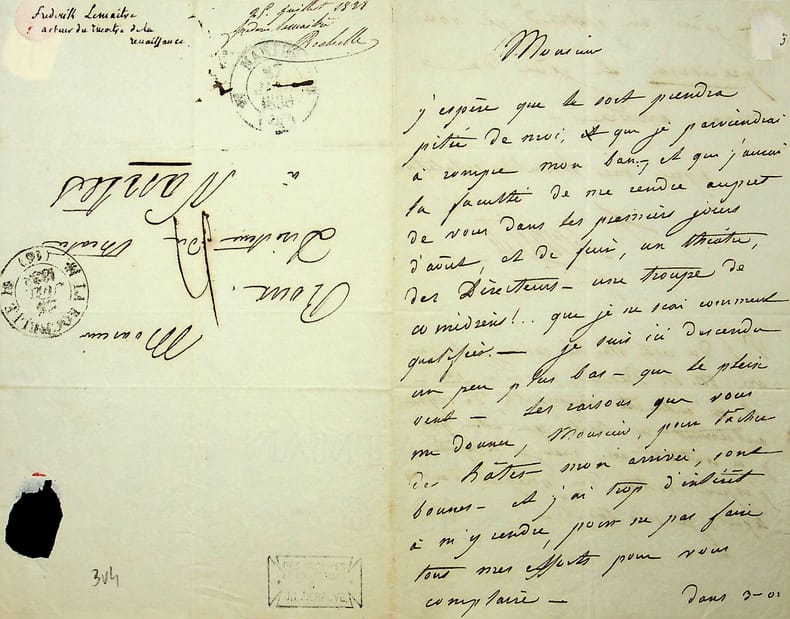 Frederik Lemaitre
acteur du theatre de la
renaissance
25 juillet 1838
frederic lemaitre
Rochelle
NANTES
27
1838
Monsieur
Roux.
Directeur Du théâtre
à
Nantes
LA ROCHELLE (16)
1838
304
J. L. DEBAUVE
3
Monsieur
j'espère que le sort prendra
pitié de moi, et que je parviendrai
à rompre mon ban, et que j'aurai
la faculté de me rendre auprès
de vous dans les premiers jours
d'août, et de fuir, un théâtre,
des Directeurs - une troupe de
comédiens!.. que je ne sai comment
qualifier. — je suis ici descendu
un peu plus bas - que le plein
vent — les raisons que vous
me donnez, Monsieur, pour tâcher
de hâter mon arrivée, sont
bonnes - et j'ai trop d'intérêt
à m'y rendre, pour ne pas faire
tous mes efforts pour vous
complaire —
dans 3 - ou